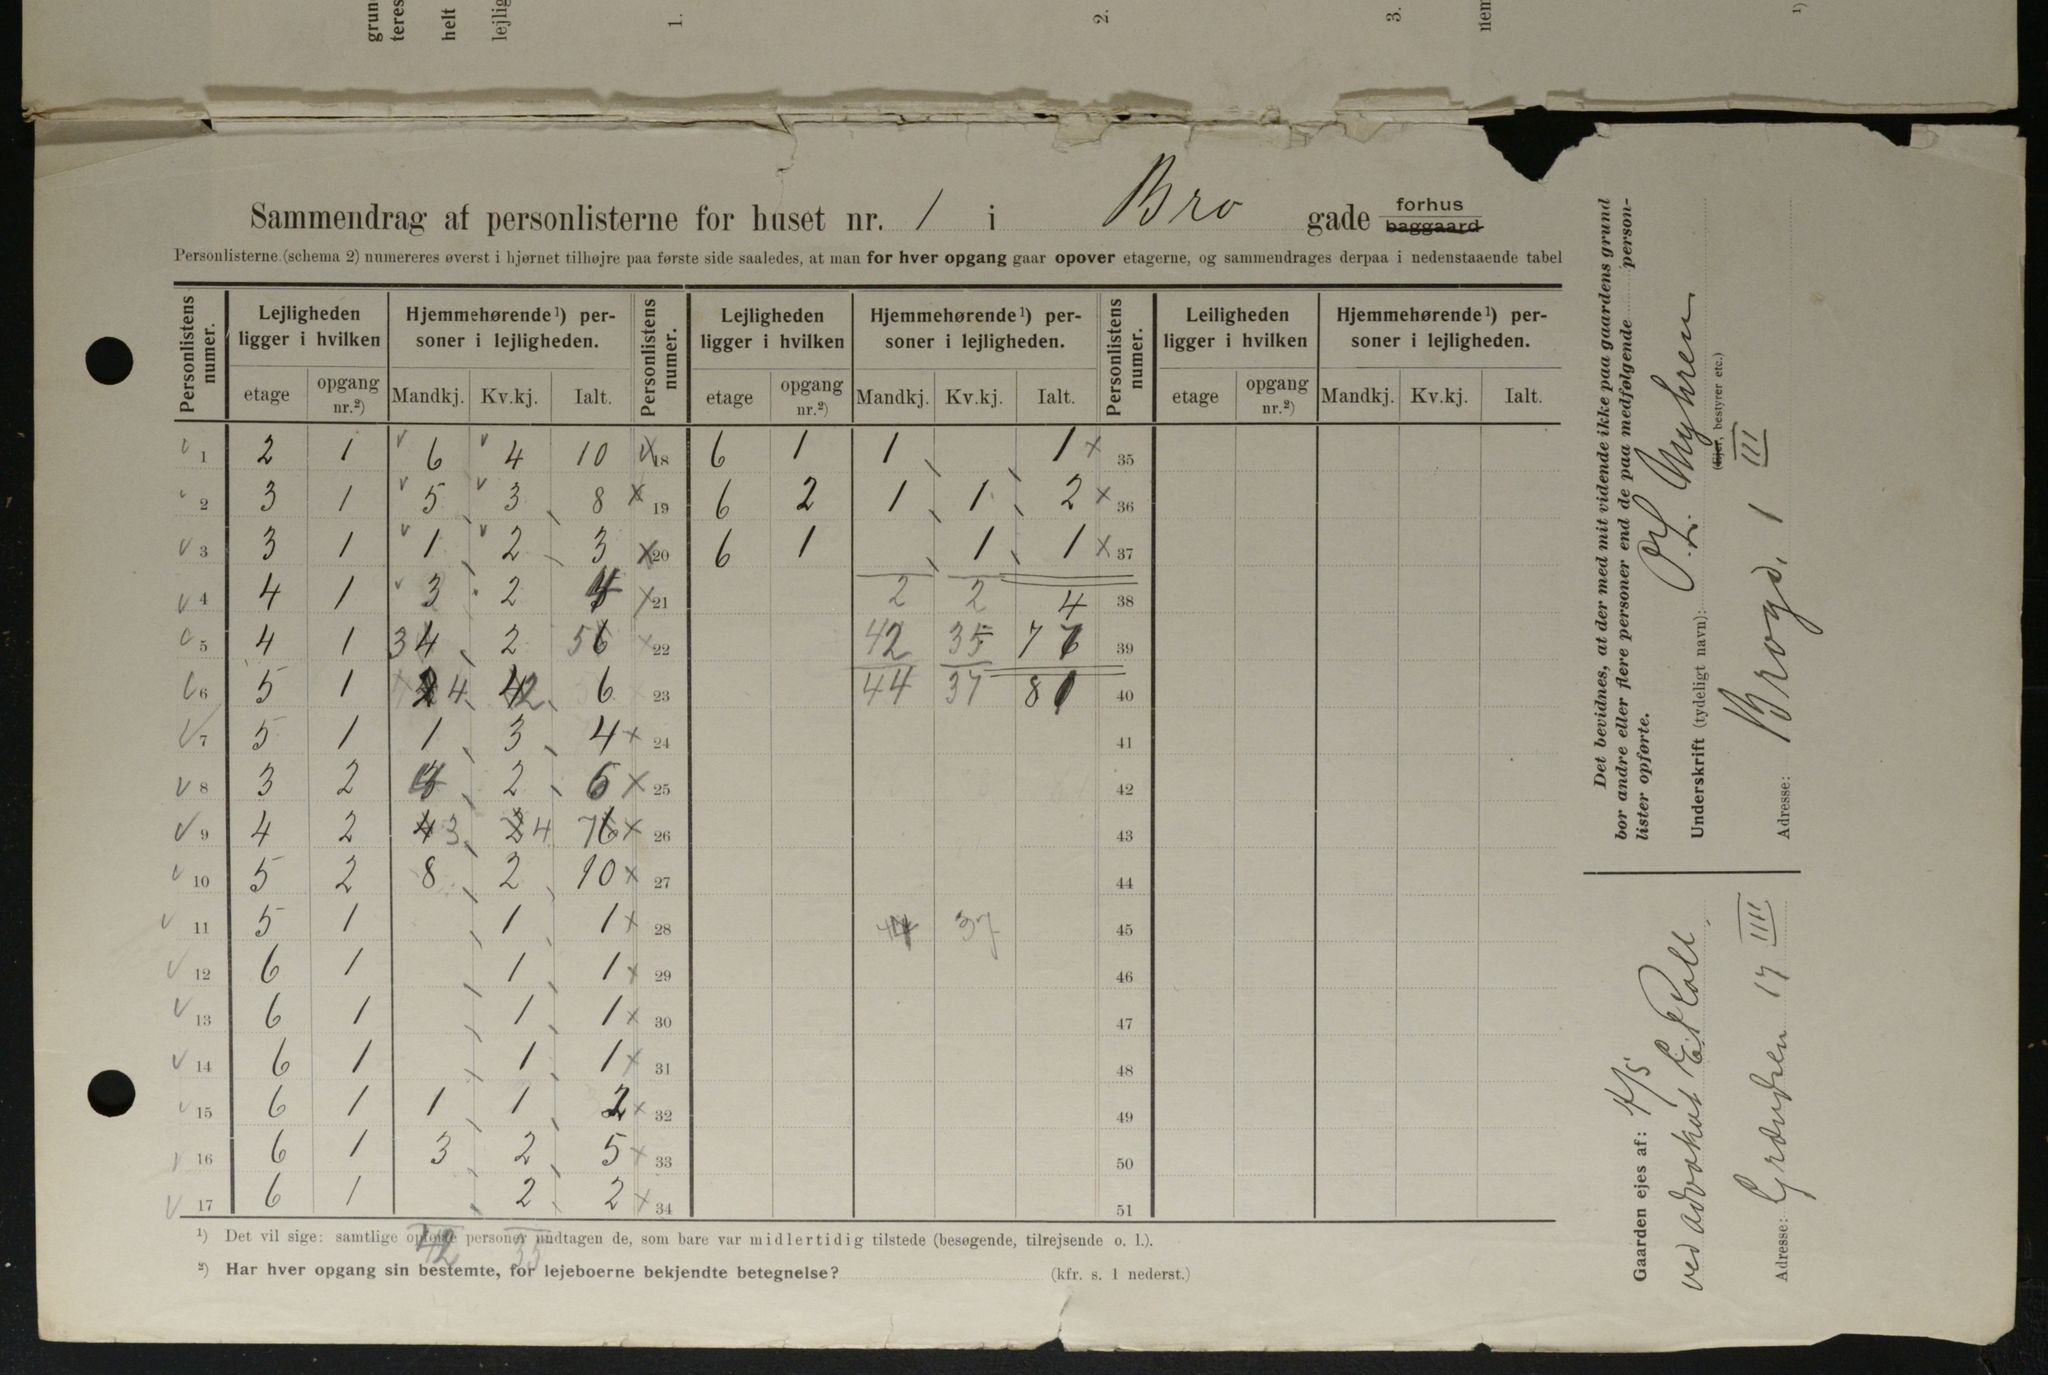 grun
teres
helt
lejlig
1.
2.
3.
nem
1)
Sammendrag af personlisterne for huset nr. 1 i Bro gade forhus baggaard
Personlisterne (schema 2) numereres øverst i hjørnet tilhøjre paa første side saaledes, at man for hver opgang gaar opover etagerne, og sammendrages derpaa i nedenstaaende tabel
Personlistens numer. Lejligheden ligger i hvilken Hjemmehørende¹) personer i lejligheden. Personlistens numer. Lejligheden ligger i hvilken Hjemmehørende¹) personer i lejligheden. Personlistens numer. Leiligheden ligger i hvilken Hjemmehørende¹) personer i lejligheden.
etage opgang nr.²) Mandkj. Kv.kj. Ialt. etage opgang nr.²) Mandkj. Kv.kj. Ialt. etage opgang nr.²) Mandkj. Kv.kj. Ialt.
1 2 1 6 4 10 18 6 1 1 1 35
2 3 1 5 3 8 19 6 2 1 1 2 36
3 3 1 1 2 3 20 6 1 1 1 37
4 4 1 3 2 21 2 2 4 38
5 4 1 34 2 56 22 42 35 77 39
6 5 1 4 2 6 23 44 37 81 40
7 5 1 1 3 4 24 41
8 3 2 2 6 25 42
9 4 2 4 3 2 4 7 6 26 43
10 5 2 8 2 10 27 44
11 5 1 1 1 28 44 37 45
12 6 1 1 1 29 46
13 6 1 1 1 30 47
14 6 1 1 1 31 48
15 6 1 1 1 2 32 49
16 6 1 3 2 5 33 50
17 6 1 2 2 34 51
42 35
¹) Det vil sige: samtlige opførte personer undtagen de, som bare var midlertidig tilstede (besøgende, tilrejsende o. l.).
²) Har hver opgang sin bestemte, for lejeboerne bekjendte betegnelse? (kfr. s. 1 nederst.)
Det bevidnes, at der med mit vidende ikke paa gaardens grund
bor andre eller flere personer end de paa medfølgende person-
lister opførte.
Underskrift (tydeligt navn): O. L. Myhren
(Ejer, bestyrer etc.)
Adresse: Brogd. 1 III
Gaarden ejes af: A/S
ved advokat E. Roll,
Adresse: Grænsen 17 III